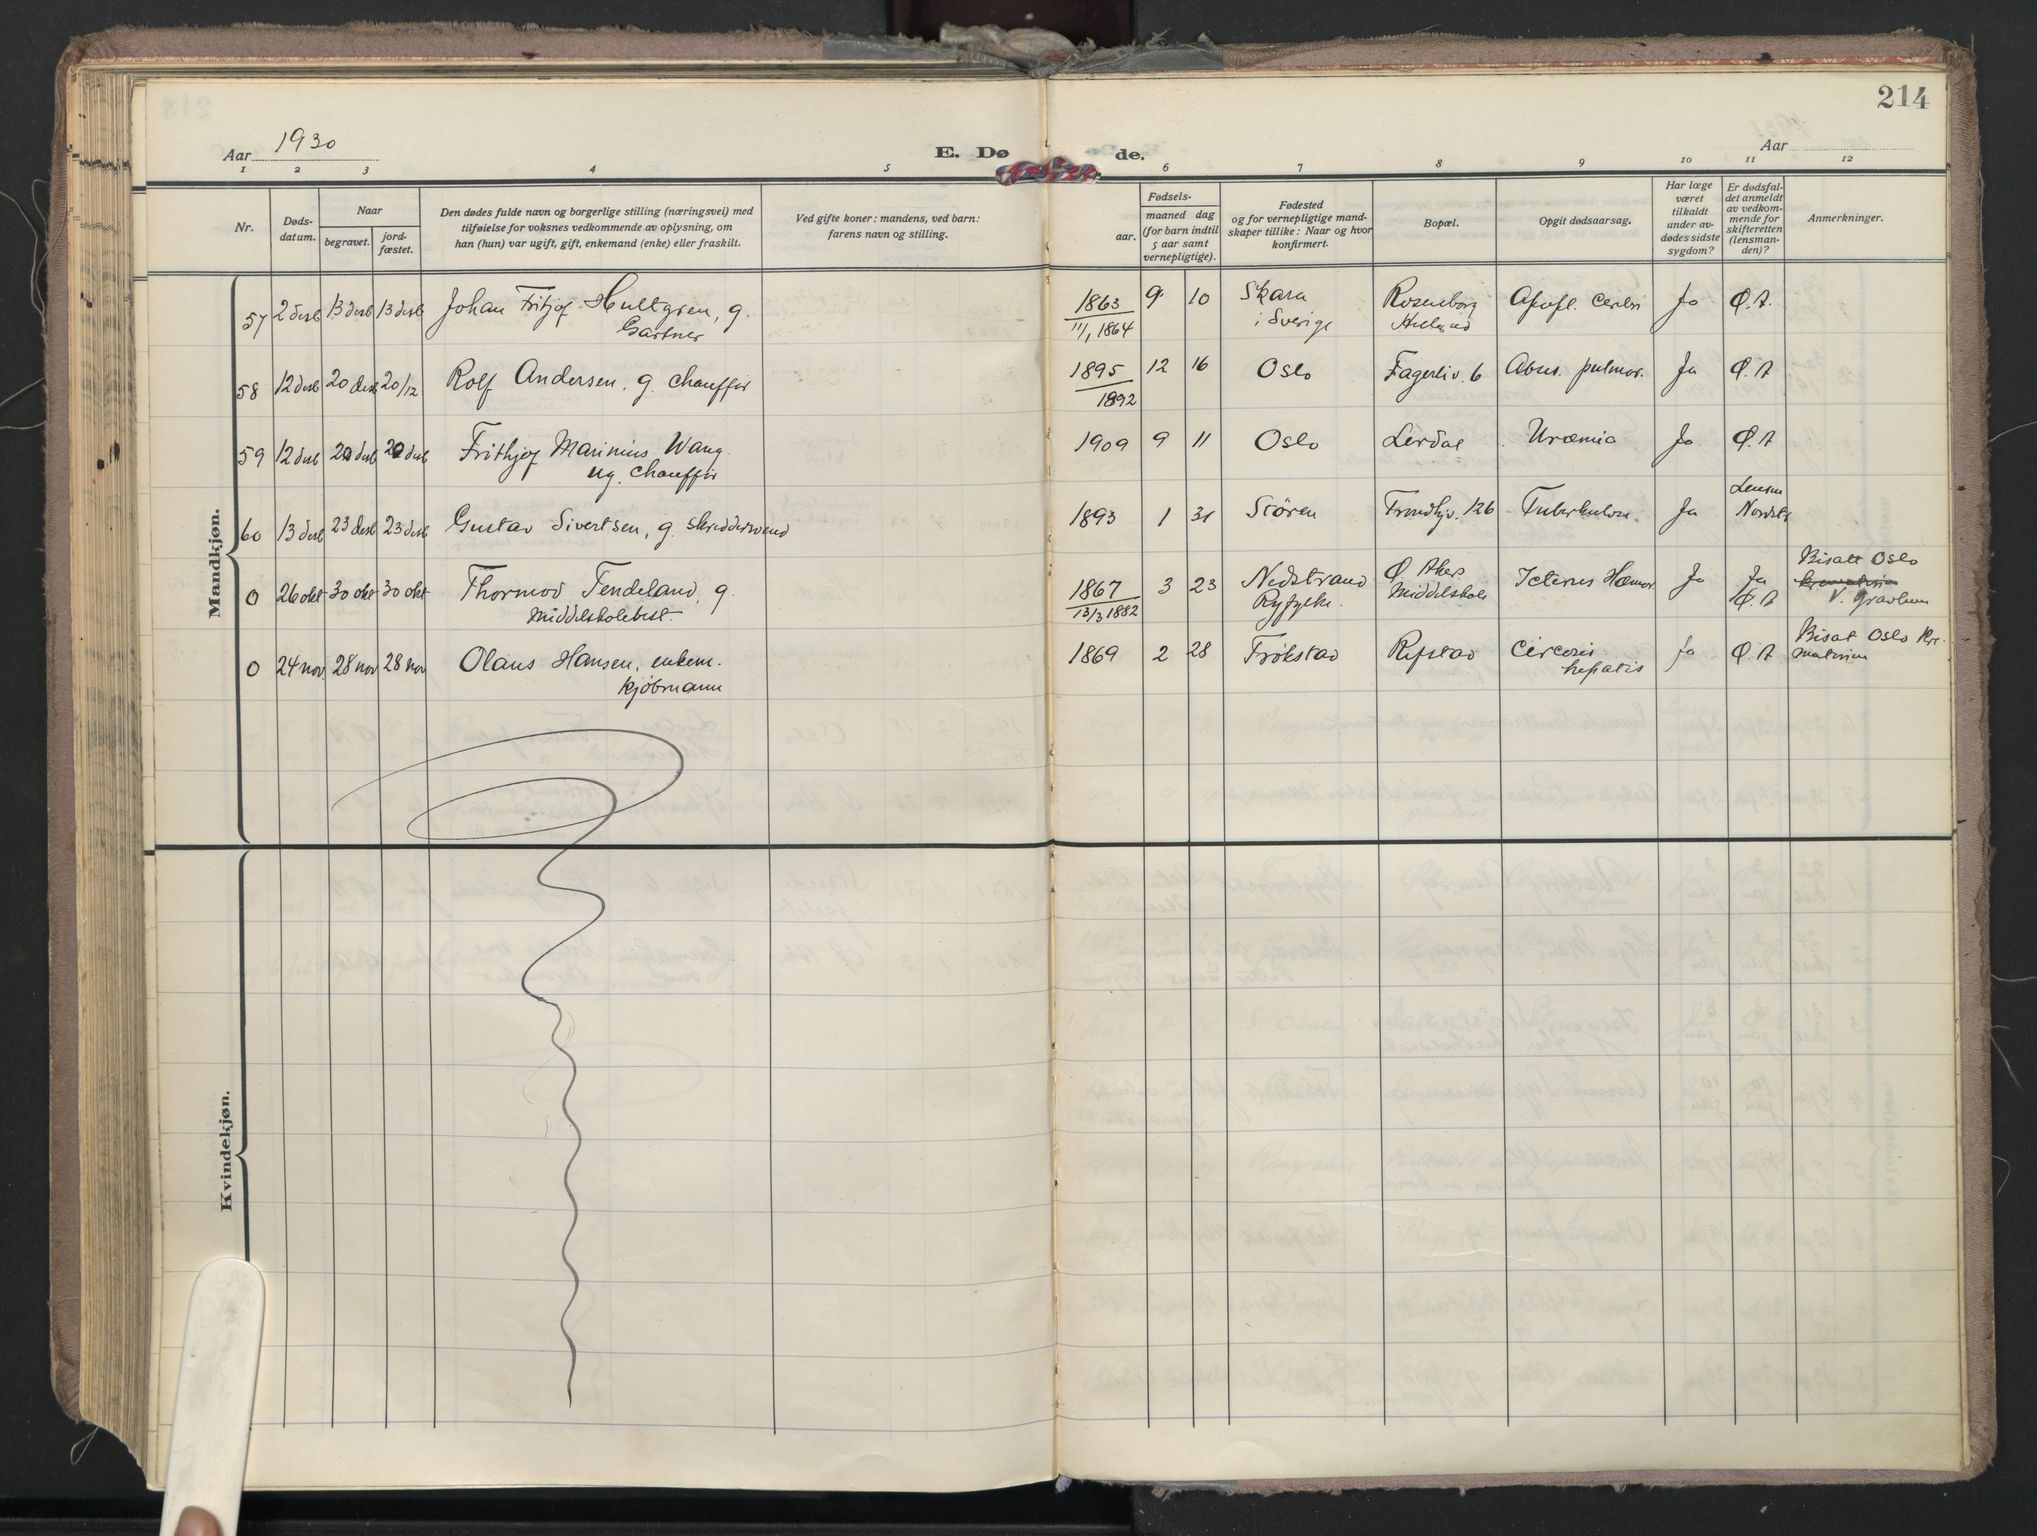 214
Aar 1930
E. Døde.
Aar
1 2 3 4 5 6 7 8 9 10 11 12
Nr.
Døds-
datum.
Naar
begravet.
jord-
fæstet.
Den dødes fulde navn og borgerlige stilling (næringsvei) med
tilføielse for voksnes vedkommende av oplysning, om
han (hun) var ugift, gift, enkemand (enke) eller fraskilt.
Ved gifte koner: mandens, ved barn:
farens navn og stilling.
Fødsels-
aar.
maaned dag
(for barn indtil
5 aar samt
vernepligtige).
Fødested
og for vernepligtige mand-
skaper tillike: Naar og hvor
konfirmert.
Bopæl.
Opgit dødsaarsag.
Har læge
været
tilkaldt
under av-
dødes sidste
sygdom?
Er dødsfal-
det anmeldt
av vedkom-
mende for
skifteretten
(lensman-
den)?
Anmerkninger.
Mandkjøn.
57 2 desb 13 desb 13 desb Johan Fritjof Hultgren, g. 1863 9 10 Skara Rosenborg Apopl. cerebri Ja Ø. A.
Gartner 11/1 1864 i Sverige
58 12 desb 20 desb 20/12 Rolf Andersen, g. chauffør 1895 12 16 Oslo Fagerliv. 6 Abus. pulmor. Ja Ø. A
1892
59 12 desb 20 desb 20 desb Frithjof Marinius Wang 1909 9 11 Oslo Lerdal Uræmia Ja Ø. A
ug. chauffør
60 13 desb 23 desb 23 desb Gustav Sivertsen, g. skreddersvend 1893 1 31 Støren Trondhjv. 126 Tuberkulose Ja Lensm
Nordstr
0 26 okt 30 okt 30 okt Thormod Tendeland, g 1867 3 23 Nedstrand Ø. Akers Icterus Hæmor. Ja Ja Bisatt Oslo
Middelskolebest. 13/3 1882 Ryfylke. Middelskole Ø. A V. Gravlund
0 24 nov. 28 nov 28 nov Olaus Hansen, enkem. 1869 2 28 Trøkstad Refstad Circoris Ja Ø. A Bisat Oslo Kre-
kjøbmann hepatis matorium
Kvindekjøn.